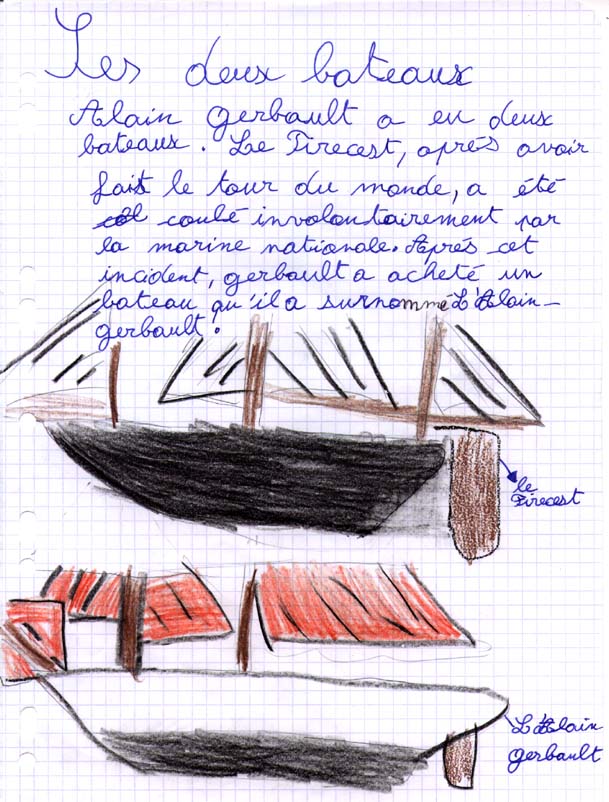 Les deux bateaux
Alain gerbault a eu deux
bateaux. Le Firecest, après avoir
fait le tour du monde, a été
coulé involontairement par
la marine nationale. Après cet
incident, gerbault a acheté un
bateau qu'il a surnommé L'Alain-
gerbault.
le
Firecest
L'Alain
gerbault